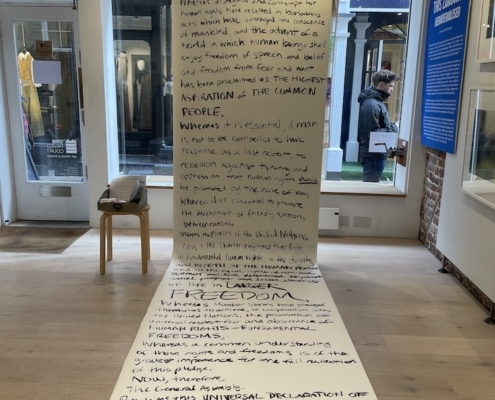 Whereas disregard and contempt for
human rights have resulted in barbarous
acts which have outraged the conscience
of mankind, and the advent of a
world in which human beings shall
enjoy freedom of speech and belief
and freedom from fear and want
has been proclaimed as THE HIGHEST
ASPIRATION OF THE COMMON
PEOPLE,
Whereas it is essential, if man
is not to be compelled to have
recourse, as a last resort, to
rebellion against tyranny and
oppression, that human rights should
be protected by the rule of law,
Whereas it is essential to promote
the development of friendly relations
between nations
Whereas the peoples of the United Nations
in the Charter reaffirmed their faith
in fundamental human rights, in the dignity
and WORTH OF THE HUMAN PERSON
of life in LARGER
FREEDOM.
Whereas Member States have pledged
themselves to achieve, in cooperation with
the United Nations, the promotion of
universal respect for and observance of
HUMAN RIGHTS - FUNDAMENTAL
FREEDOMS,
Whereas a common understanding
of these rights and freedoms is of the
greatest importance for the full realization
of this pledge.
NOW, therefore,
The General Assembly,
Proclaims this UNIVERSAL DECLARATION OF